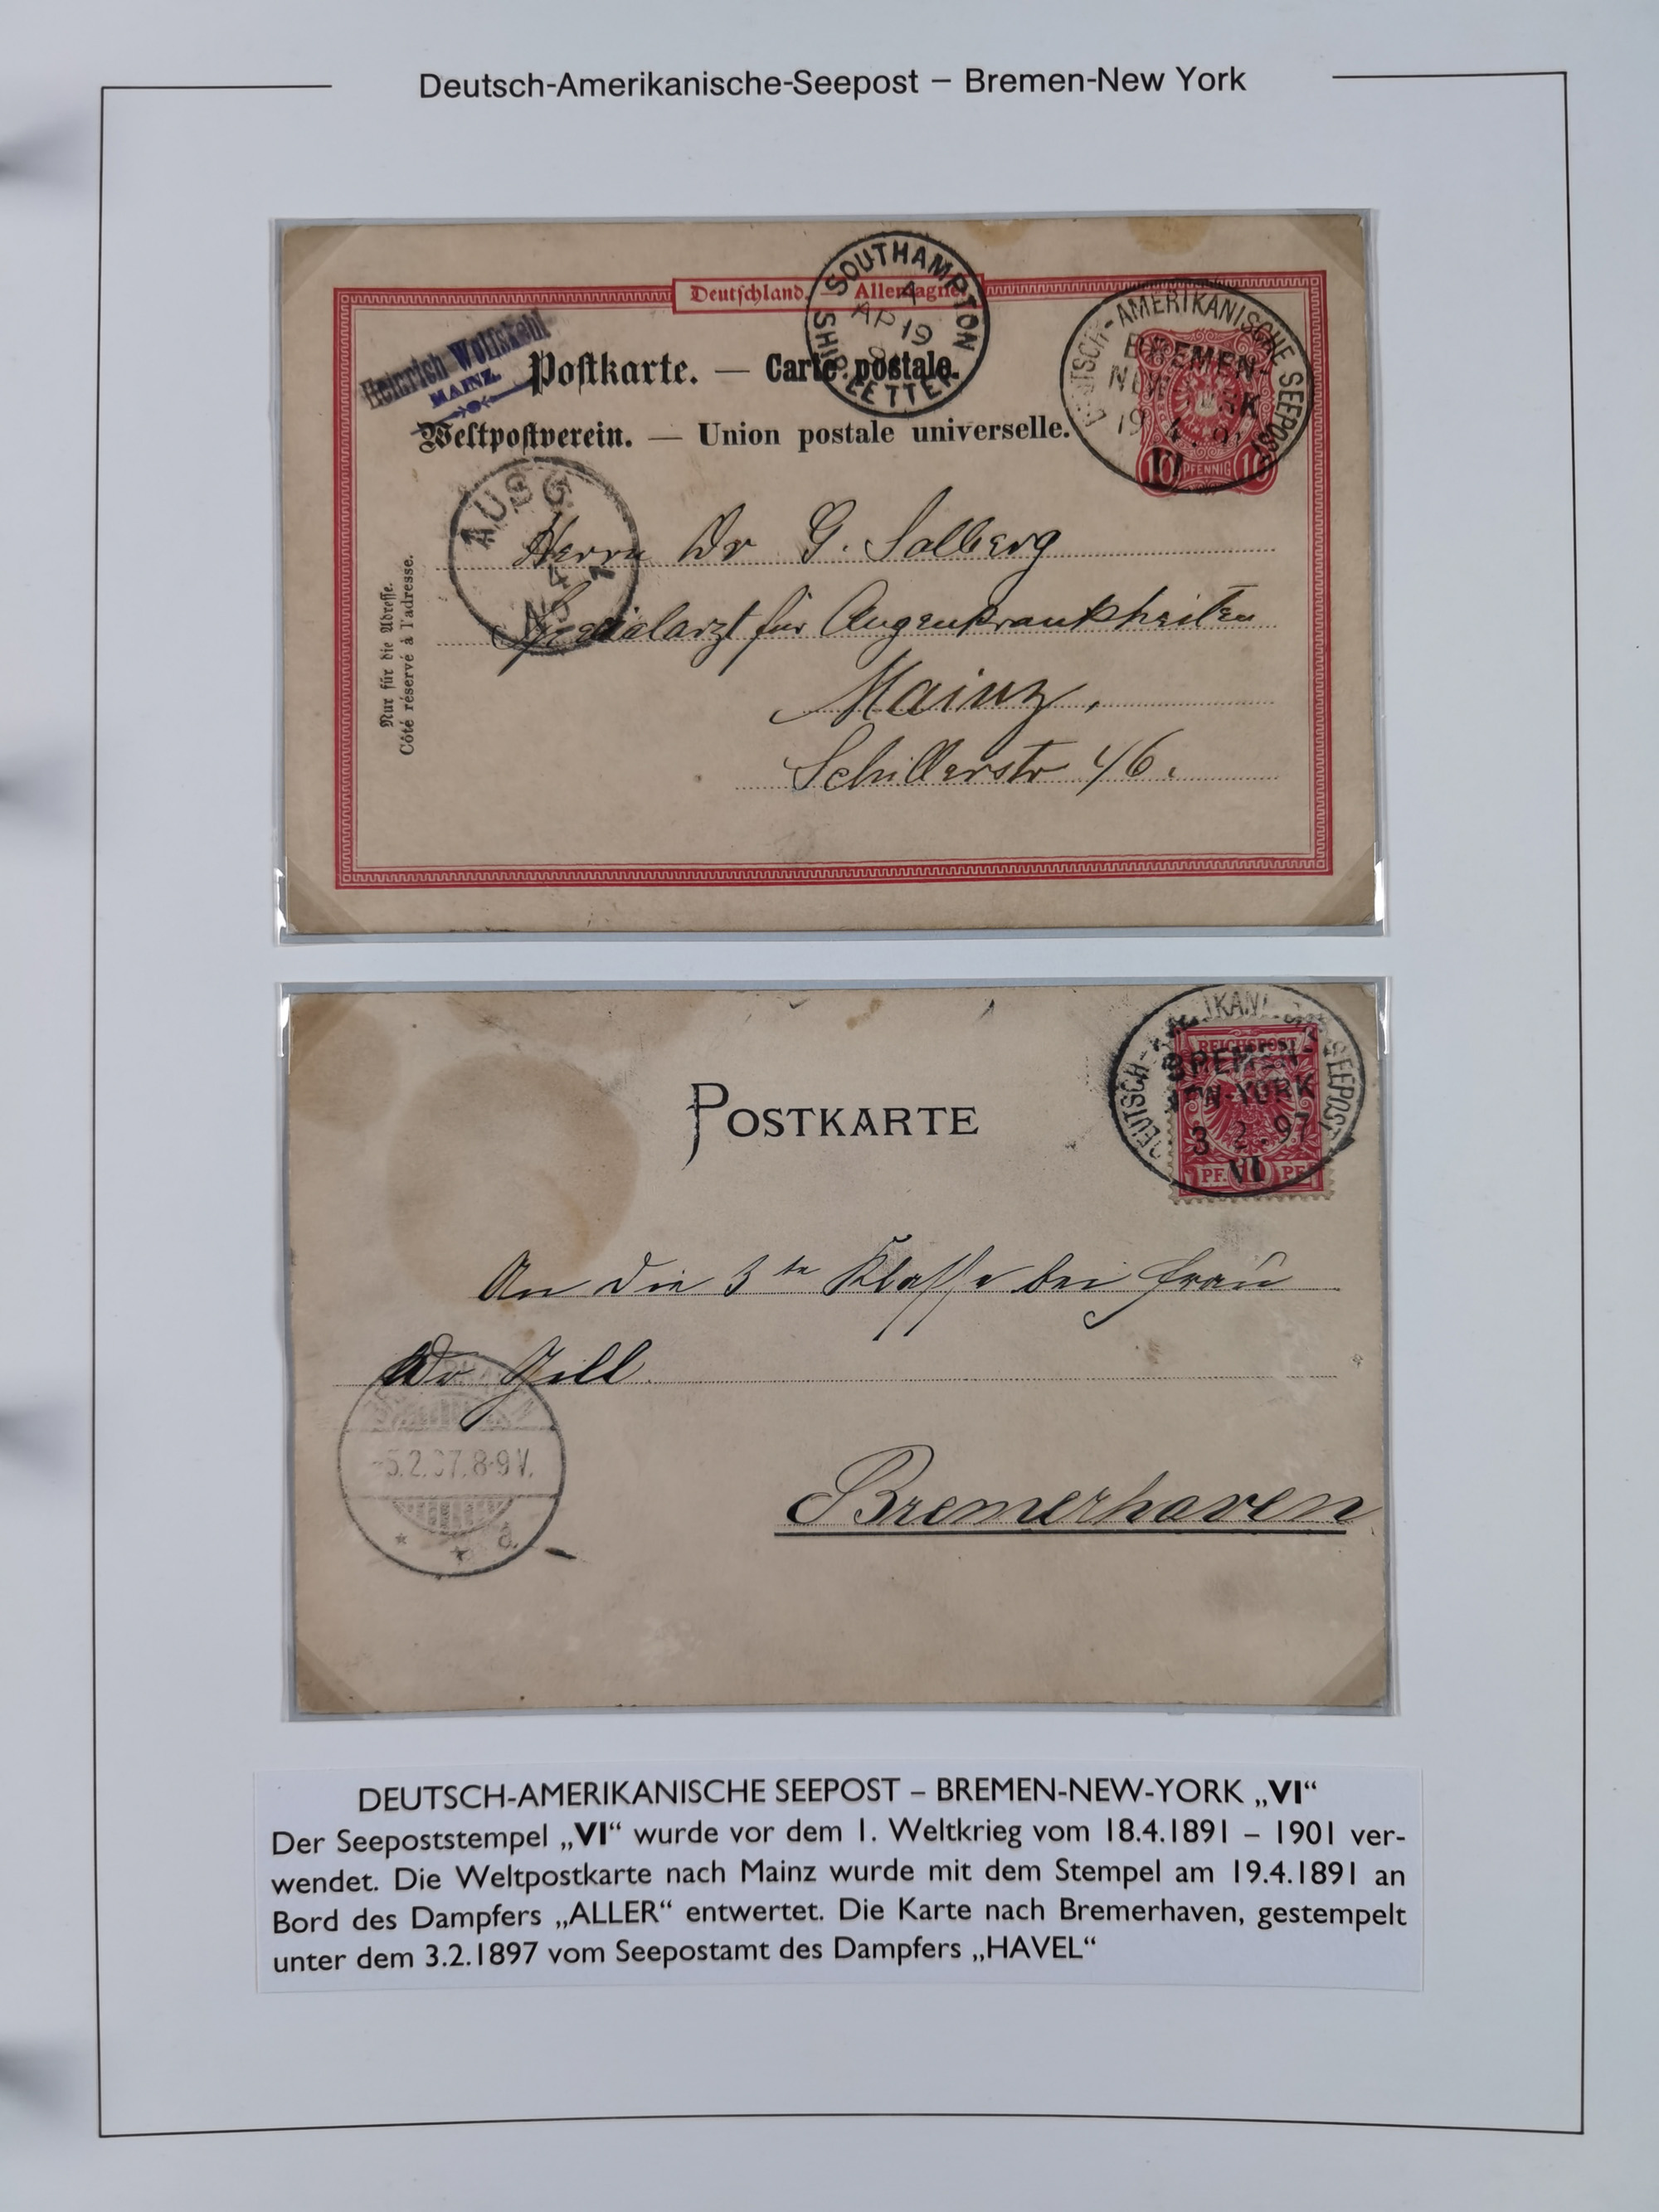 Deutsch-Amerikanische-Seepost – Bremen-New York
Deutschland. — Allemagne.
SOUTHAMPTON
SHIP LETTER
4
AP 19
Heinrich Wolfskehl
MAINZ.
Postkarte. — Carte postale.
Weltpostverein. — Union postale universelle.
DEUTSCH-AMERIKANISCHE SEEPOST
BREMEN-
NEW YORK
19 4. 91
VI
10 PFENNIG 10
AUSG
4
Nur für die Adresse.
Côté réservé à l'adresse.
Herrn Dr G. Salberg
Spezialarzt für Augenkrankheiten
Mainz,
Schillerstr 46.
POSTKARTE
DEUTSCH-AMERIKANISCHE SEEPOST
BREMEN-
NEW-YORK
3 2. 97
VI
REICHSPOST
PF. 10 PF.
An die 3te Klasse bei Frau
Dr Gill
-5.2.97.8-9V.
* * a.
Bremerhaven
DEUTSCH-AMERIKANISCHE SEEPOST – BREMEN-NEW-YORK „VI“
Der Seepoststempel „VI“ wurde vor dem 1. Weltkrieg vom 18.4.1891 – 1901 ver-
wendet. Die Weltpostkarte nach Mainz wurde mit dem Stempel am 19.4.1891 an
Bord des Dampfers „ALLER“ entwertet. Die Karte nach Bremerhaven, gestempelt
unter dem 3.2.1897 vom Seepostamt des Dampfers „HAVEL“